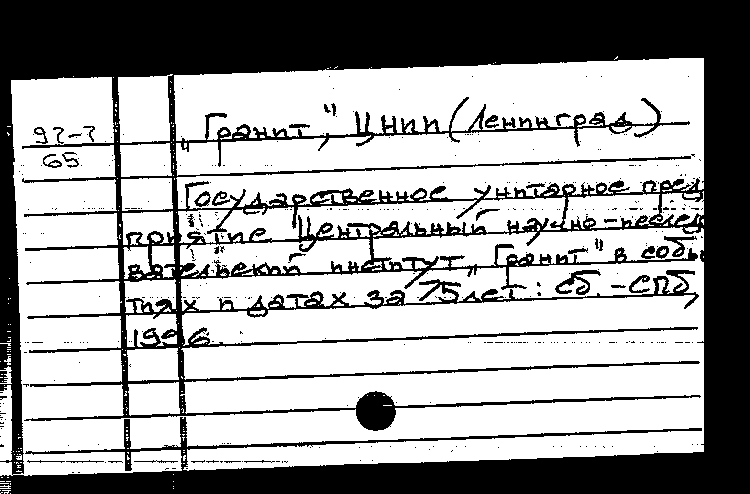 „Гранит", ЦНИИ (Ленинград)
97-7
65
Государственное унитарное пред
приятие "Центральный научно-исслед
вательский институт „Гранит" в собы
тиях и датах за 75 лет: Сб. - СПб,
1996.